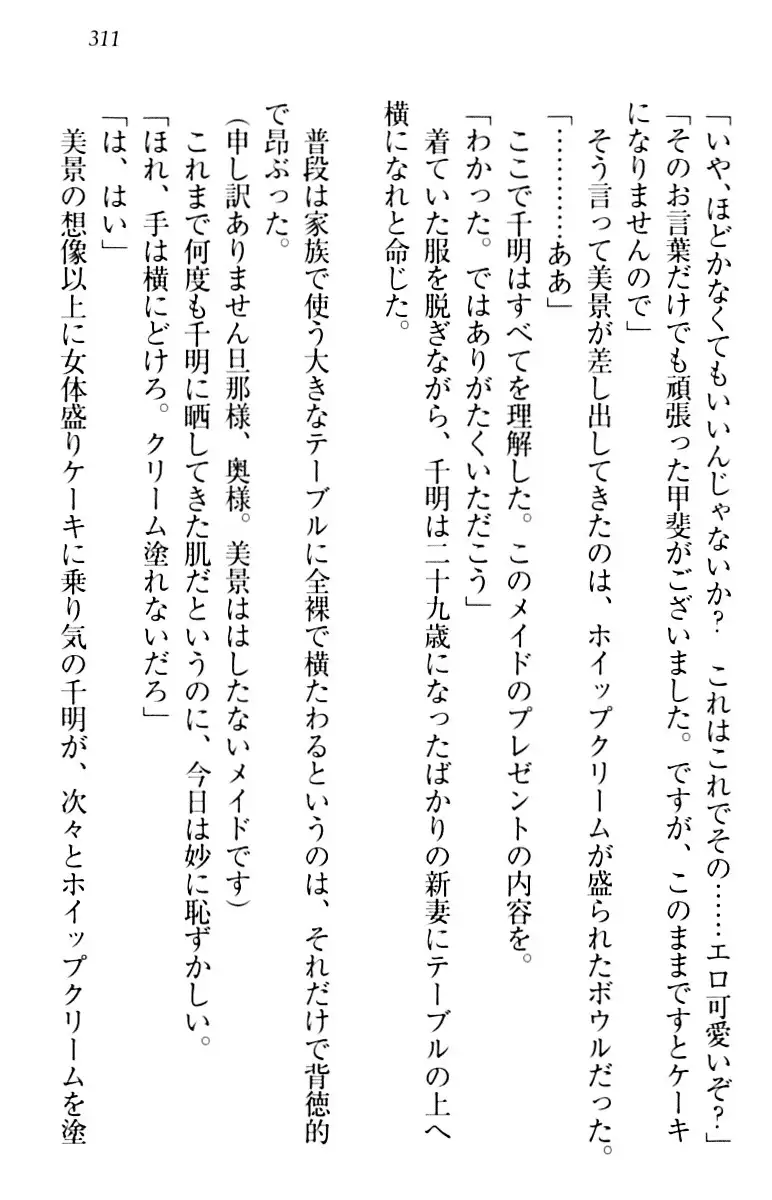 311
「いや、ほどかなくてもいいんじゃないか？　これはこれでその……エロ可愛いぞ？」
「そのお言葉だけでも頑張った甲斐がございました。ですが、このままですとケーキ
になりませんので」
そう言って美景が差し出してきたのは、ホイップクリームが盛られたボウルだった。
「…………ああ」
ここで千明はすべてを理解した。このメイドのプレゼントの内容を。
「わかった。ではありがたくいただこう」
着ていた服を脱ぎながら、千明は二十九歳になったばかりの新妻にテーブルの上へ
横になれと命じた。
普段は家族で使う大きなテーブルに全裸で横たわるというのは、それだけで背徳的
で昂ぶった。
（申し訳ありません旦那様、奥様。美景ははしたないメイドです）
これまで何度も千明に晒してきた肌だというのに、今日は妙に恥ずかしい。
「ほれ、手は横にどけろ。クリーム塗れないだろ」
「は、はい」
美景の想像以上に女体盛りケーキに乗り気の千明が、次々とホイップクリームを塗